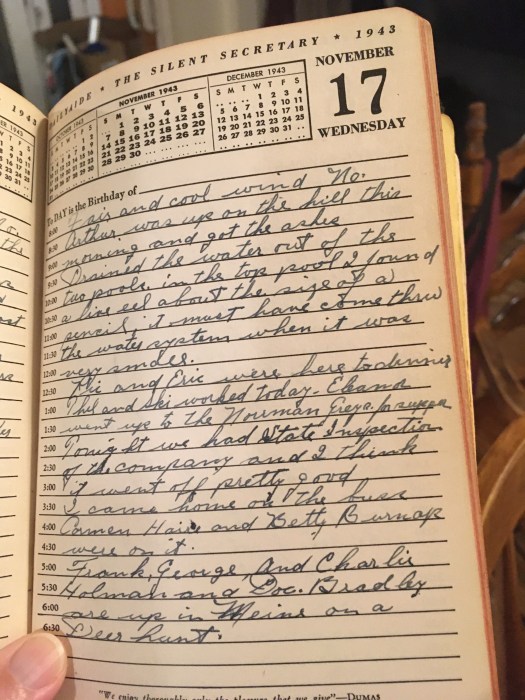 AIDE ★ THE SILENT SECRETARY ★ 1943
NOVEMBER 1943
S M T W T F S
1 2 3 4 5 6
7 8 9 10 11 12 13
14 15 16 17 18 19 20
21 22 23 24 25 26 27
28 29 30
DECEMBER 1943
S M T W T F S
1 2 3 4
5 6 7 8 9 10 11
12 13 14 15 16 17 18
19 20 21 22 23 24 25
26 27 28 29 30 31
NOVEMBER
17
WEDNESDAY
To DAY is the Birthday of
8:00 Fair and cool wind No.
8:30 Arthur was up on the hill this
9:00 morning and got the ashes
9:30 Drained the water out of the
10:00 two pools, in the top pool I found
10:30 a live eel about the size of a
11:00 pencil, it must have come thru
11:30 the water system when it was
12:00 very small.
12:30 and Eric were here to dinner
1:00 Phil and Ski worked today.
1:30 went up to the Norman Greys. for supper
2:00 Tonight we had State Inspection
2:30 of the company and I think
3:00 it went off pretty good
3:30 I came home on the buss
4:00 Carmen and Betty Burnap
4:30 were on it.
5:00 Frank, George, And Charlie
5:30 Holman and Doc. Bradley
6:00 are up in Meine on a
6:30 Deer hunt.
"We enjoy thoroughly only the pleasure that we give"—DUMAS